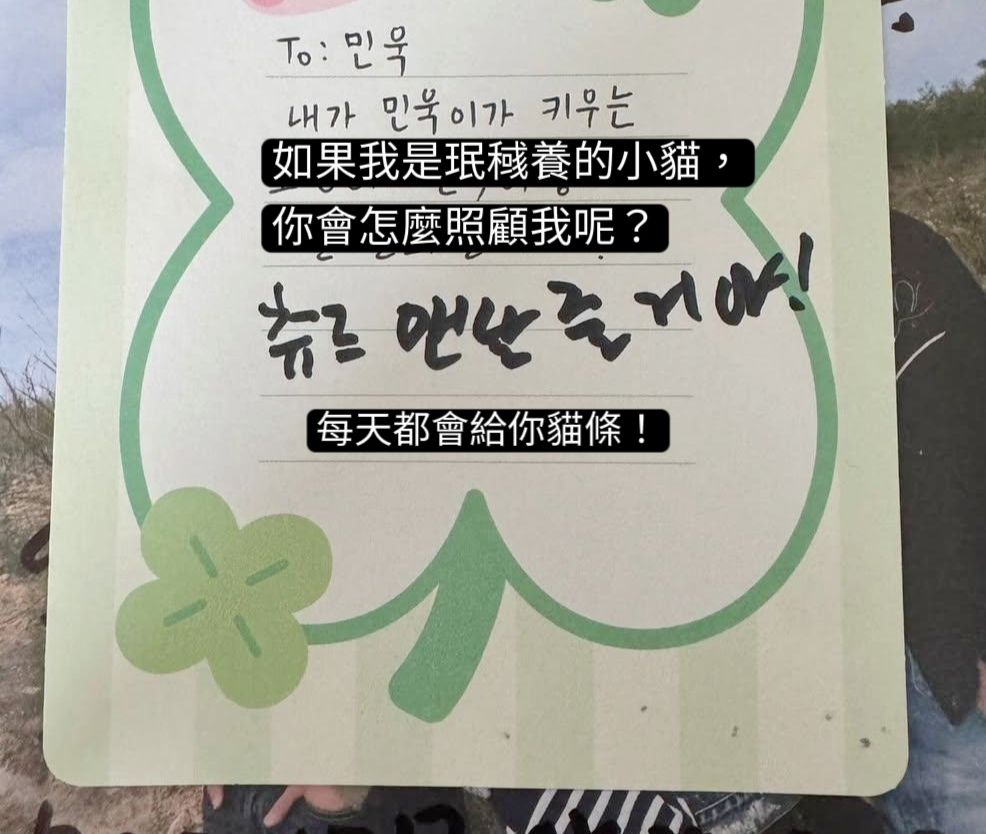 To: 민욱
내가 민욱이가 키우는
如果我是珉稶養的小貓，
你會怎麼照顧我呢？
츄르 맨날 줄거야!
每天都會給你貓條！